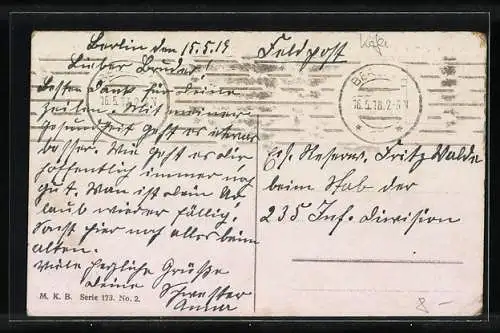 Berlin den 15.5.18
Feldpost
Lieber Bruder!
Besten Dank für deine
Zeilen. Mit meiner
Gesundheit geht es etwas
besser. Wie geht es dir
hoffentlich immer noch
gut. Wan ist dein Ur
laub wieder fällig.
Sonst hier noch alles beim
alten.
Viele herzliche Grüße
deine Schwester
Anna
BE
16.5.18. 2-3 N
Ers. Reserv. Fritz Walde
beim Stab der
235 Inf. division
M. K. B. Serie 173. No. 2.
8-